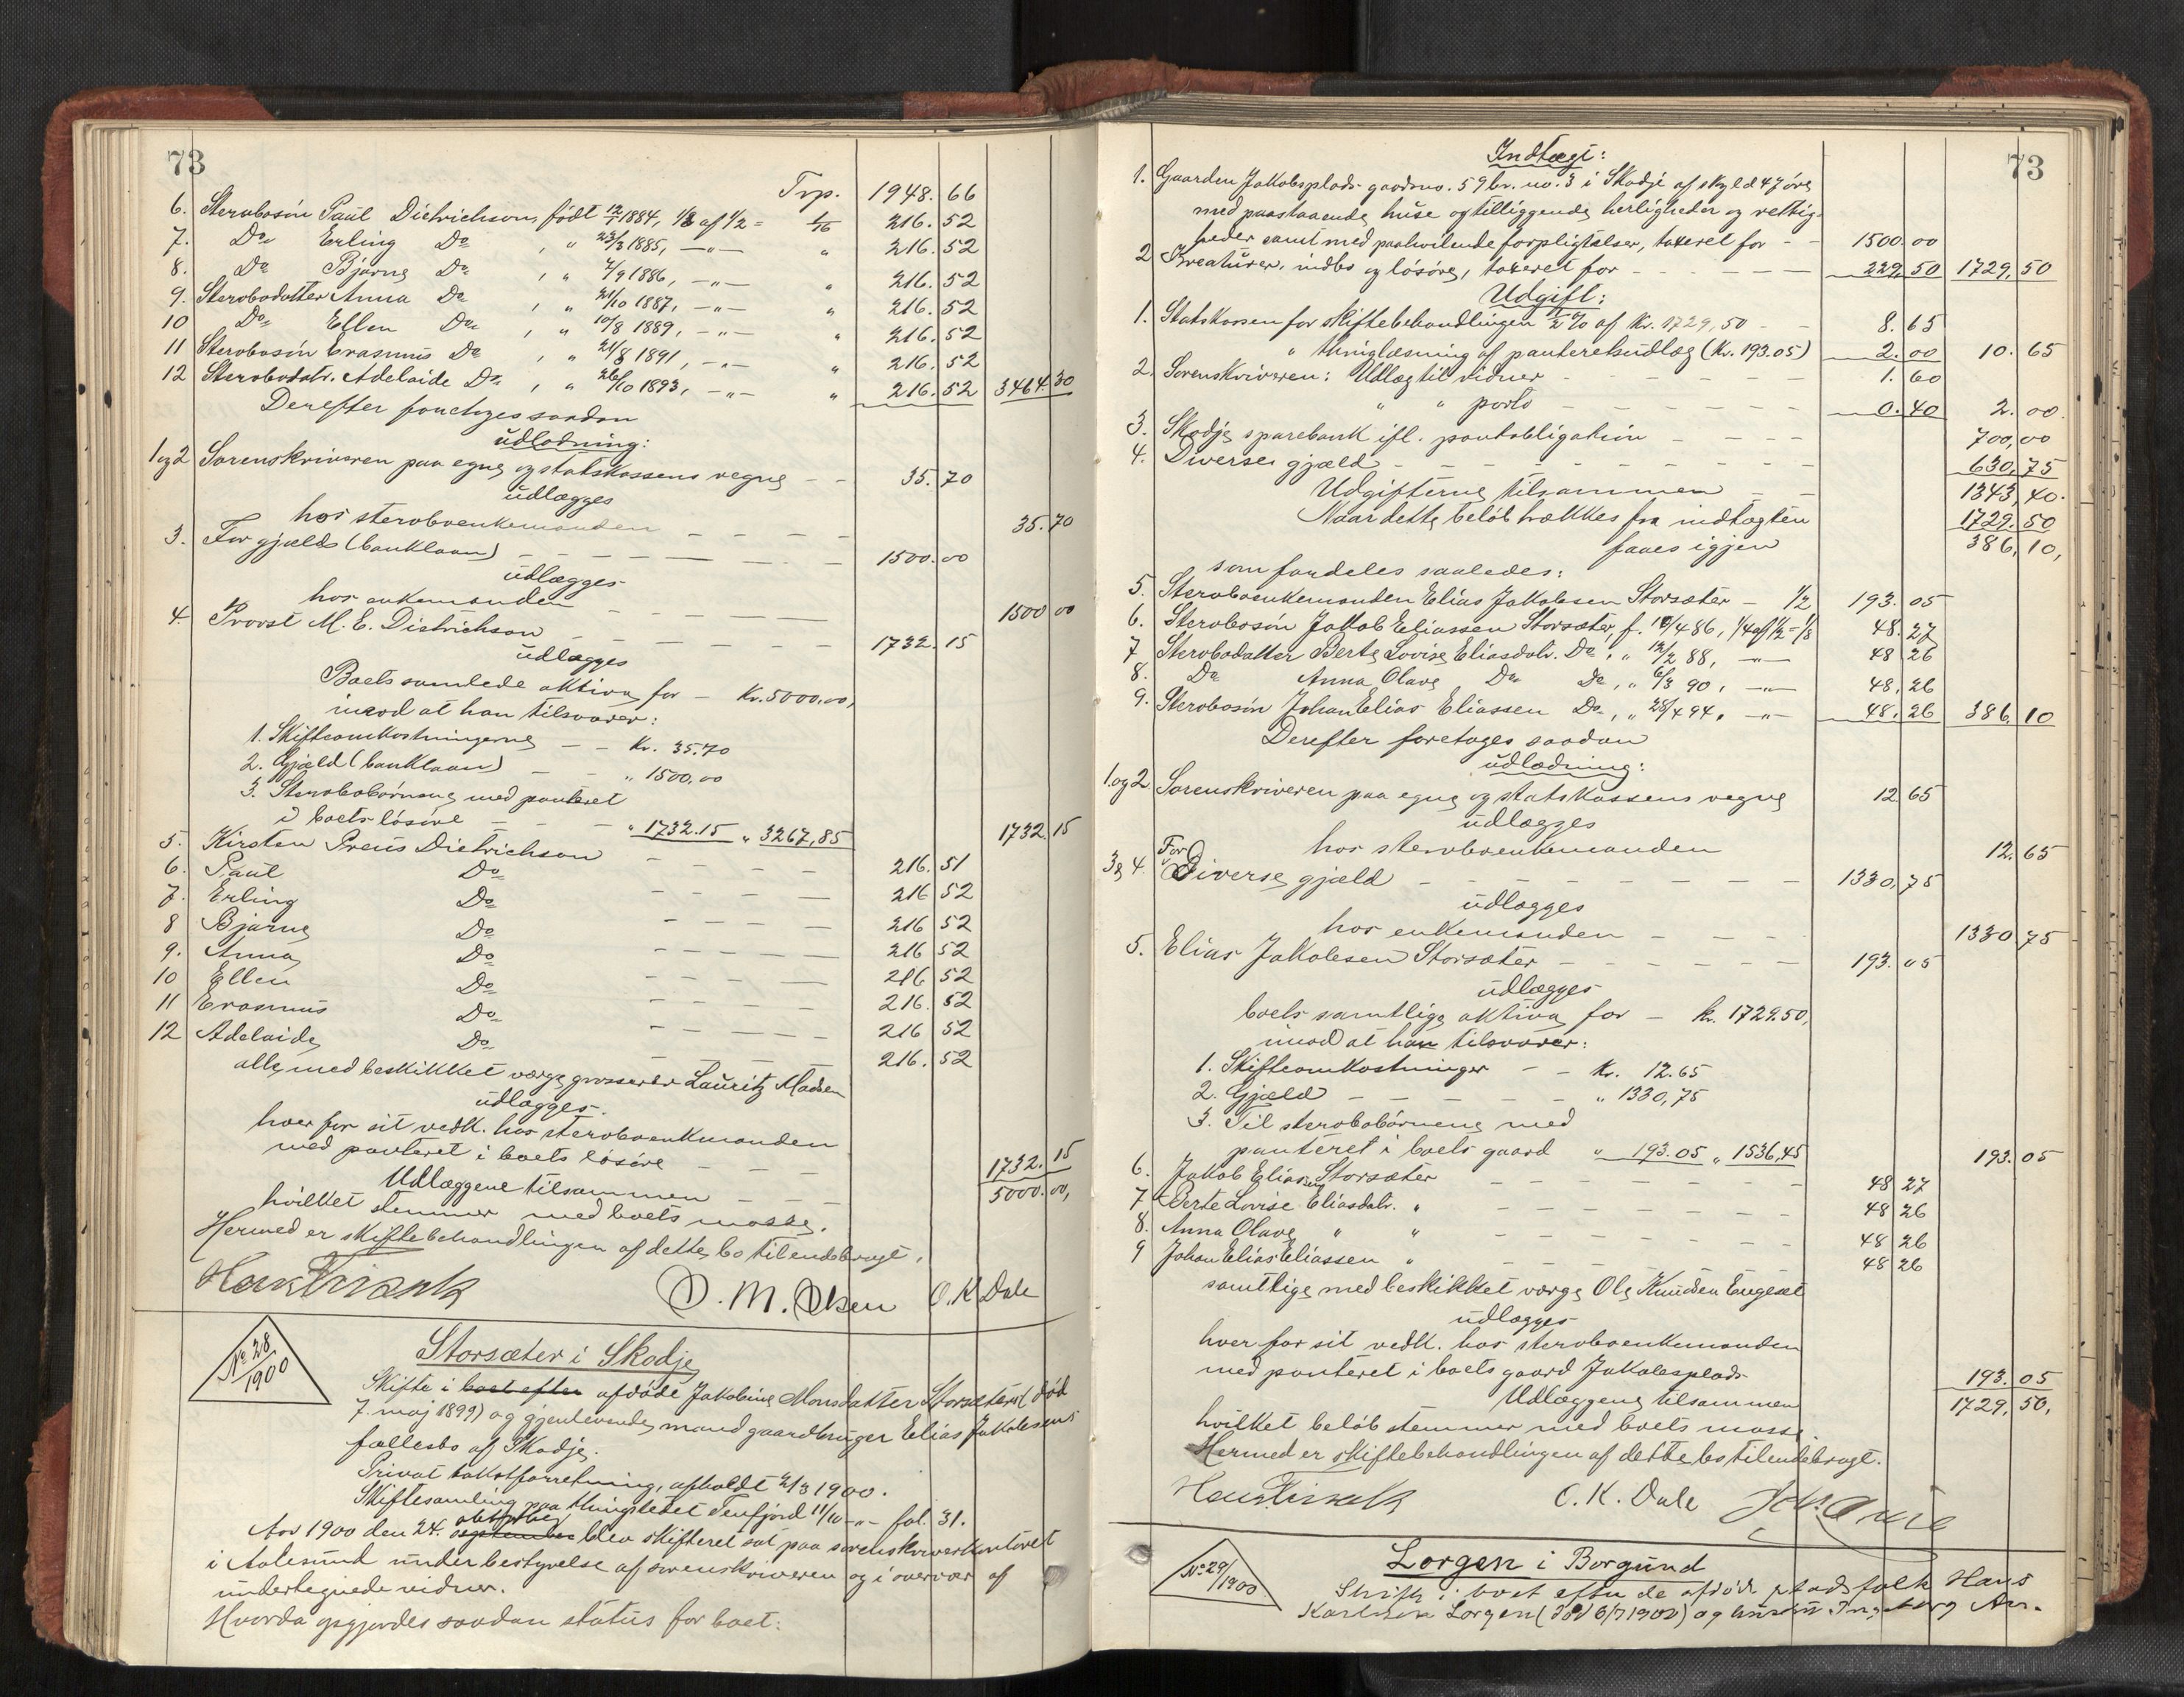 73
Trp. 1948. 66
6. Sterobosön Paul Dietrichson, født 12/7 1884, 1/8 af 1/2 = 1/16 216. 52
7. Do Erling Do , " 23/3 1885, —"— " 216. 52
8. Do Bjarne Do , " 4/9 1886, —"— " 216. 52
9. Sterbodatter Anna Do , " 21/10 1887, —"— " 216. 52
10 Do Ellen Do , " 10/8 1889, —"— " 216. 52
11 Sterbosön Erasmus Do , " 21/8 1891, —"— " 216. 52
12 Sterbodatr. Adelaide Do , " 26/10 1893, —"— " 216. 52 3464. 30
Derefter foretoges saadan
udlodning:
1 og 2 Sorenskriveren paa egne og statskassens vegne — — 35. 70
udlægges
hos sterboenkemanden — — — 35. 70
3. For gjæld (banklaan) — — — 1500. 00
udlægges
hos enkemanden — — — 1500 00
4. Provst M. E. Dietrichson — — — 1732. 15
udlægges
Boets samlede aktiva for — Kr. 5000.00,
imod at han tilsvarer:
1. Skifteomkostningerne — — Kr. 35.70
2. Gjæld (banklaan) — — " 1500.00
3. Sterbobörnene med panteret
i boets lösöre — — " 1732.15 " 3267,85 1732. 15
5. Kirsten Preus Dietrichson — — — 216. 51
6. Paul Do — — — 216 52
7. Erling Do — — — 216 52
8 Bjarne Do — — — 216 52
9. Anna Do — — — 216 52
10 Ellen Do — — — 216. 52
11 Erasmus Do — — — 216 52
12 Adelaide Do — — — 216. 52
alle med beskikket værge grosserer Lauritz Madsen
udlægges.
hver for sit vedk. hos sterboenkemanden
med panteret i boets lösöre — — — 1732. 15
Udlæggene tilsammen — — — 5000. 00,
hvilket stemmer med boets masse.
Hermed er skiftebehandlingen af dette bo tilendebragt.
O. M. Olsen O. K. Dale
No 28/1900
Storsæter i Skodje
Skifte i boet efter afdöde Jakobine Monsdatter Storsæters (död
7. maj 1899) og gjenlevende mand gaardbruger Elias Jakobsens
fællesbo af Skodje.
Privat takstforretning, afholdt 2/3 1900.
Skiftesamling paa thingstedet Tenfjord 11/10 —"— fol. 31.
oktober
Aar 1900 den 24. september blev skifteret sat paa sorenskriverkontoret
i Aalesund under bestyrelse af sorenskriveren og i overvær af
undertegnede vidner.
Hvorda opgjordes saadan status for boet:
73
Indtægt:
1. Gaarden Jakobsplads gaardsno. 59 br. no. 3 i Skodje af skyld 47 öre
med paastaaende huse og tilliggende herligheder og rettig-
heder samt med paahvilende forpligtelser, taxeret for — — 1500. 00
2 Kreaturer, indbo og lösöre, taxeret for — — — 229. 50 1729, 50
Udgift:
1. Statskassen for skiftebehandlingen 1/2 % af Kr. 1729,50 — — 8. 65
" thinglæsning af panteretsudlæg (Kr. 193.05) 2. 00 10. 65
2. Sorenskriveren: Udlæg til vidner — — — 1. 60
" " porto — — — 0. 40 2. 00.
3. Skodje sparebank ifl. pantobligation — — — 700, 00
4. Diverse gjæld — — — 630, 75
Udgifterne tilsammen — — 1343, 40.
Naar dette belöb trækkes fra indtægten 1729. 50
faaes igjen 386, 10,
som fordeles saaledes:
5. Sterboenkemanden Elias Jakobsen Storsæter — 1/2 193. 05
6. Sterbosön Jakob Eliassen Storsæter, f. 19/4 86, 1/4 af 1/2 = 1/8 48. 27
7 Sterbodatter Berte Lovise Eliasdatr. Do, " 12/2 88, —"— 48 26
8. Do Anna Olave Do Do, " 6/3 90, —"— 48, 26
9. Sterbosön Johan Elias Eliassen Do, " 28/4 94, —"— 48. 26 386. 10
Derefter foretoges saadan
udlodning:
1 og 2 Sorenskriveren paa egne og statskassens vegne 12 65
udlægges
hos sterboenkemanden 12. 65
3 & 4. For Diverse gjæld — — — 1330, 75
udlægges
hos enkemanden — — — 1330 75
5. Elias Jakobsen Storsæter — — — 193. 05
udlægges
boets samtlige aktiva for — Kr. 1729.50,
imod at han tilsvarer:
1. Skifteomkostninger — — Kr. 12.65
2. Gjæld — — — " 1330,75
3. Til sterbobörnene med
panteret i boets gaard " 193.05 " 1536,45 193. 05
6. Jakob Eliassen Storsæter — — — 48 27
7 Berte Lovise Eliasdatr. " — — — 48 26
8. Anna Olave " " — — — 48 26
9 Johan Elias Eliassen " — — — 48 26
samtlige med beskikket værge Ole Knudsen Engeset
udlægges
hver for sit vedk. hos sterboenkemanden
med panteret i boets gaard Jakobsplads 193. 05
Udlæggene tilsammen 1729, 50,
hvilket belöb stemmer med boets masse.
Hermed er skiftebehandlingen af dette bo tilendebragt.
O. K. Dale
No 29/1900
Lorgen i Borgund
Skifte i boet efter de afdöde pladsfolk Hans
Karlsen Lorgen (död 6/7 1900) og hustru Ingeborg An-